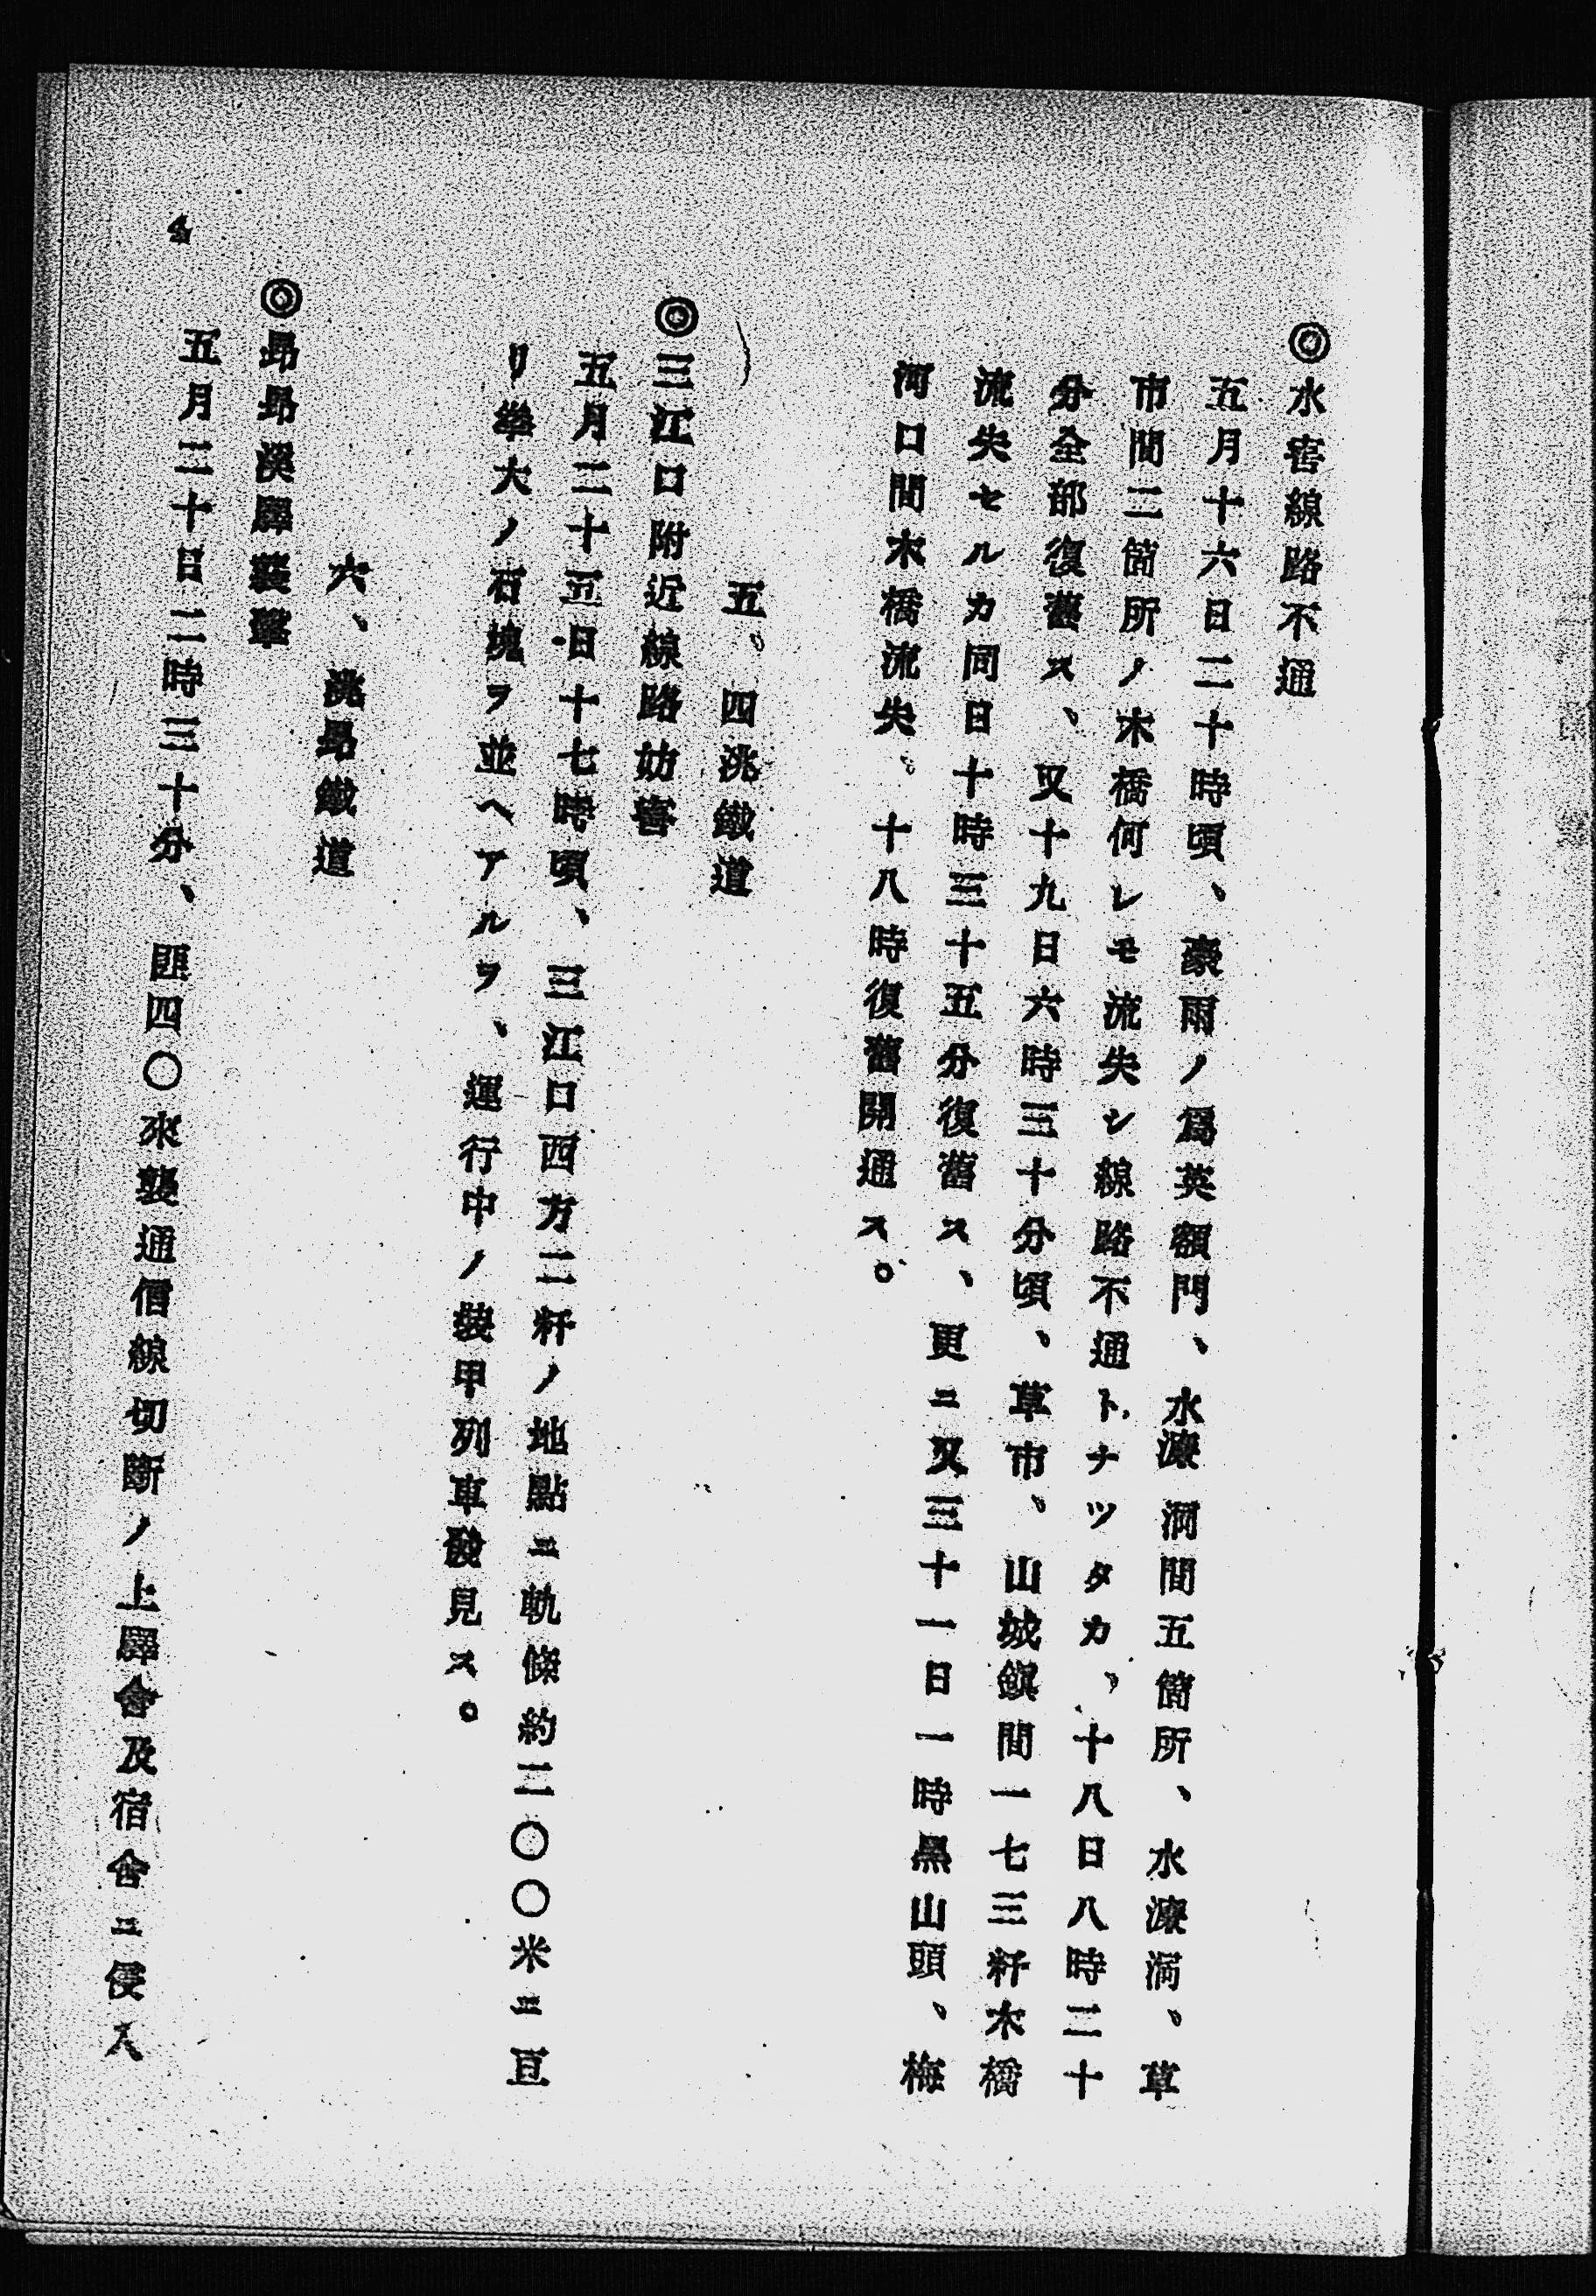 ◎水害線路不通
五月十六日二十時頃、豪雨ノ爲英額門、水濂洞間五箇所、水濂洞、草
市間二箇所ノ木橋何レモ流失シ線路不通トナツタカ、十八日八時二十
分全部復舊ス、又十九日六時三十分頃、草市、山城鎭間一七三粁木橋
流失セルカ同日十時三十五分復舊ス、更ニ又三十一日一時黑山頭、梅
河口間木橋流失、十八時復舊開通ス。
五、四洮鐵道
◎三江口附近線路妨害
五月二十五日十七時頃、三江口西方二粁ノ地點ニ軌條約二〇〇米ニ亘
リ擧大ノ石塊ヲ並ヘアルヲ、運行中ノ裝甲列車發見ス。
六、洮昂鐵道
◎昂昂溪驛襲擊
五月二十日二時三十分、匪四〇來襲通信線切斷ノ上驛舍及宿舍ニ侵入
4